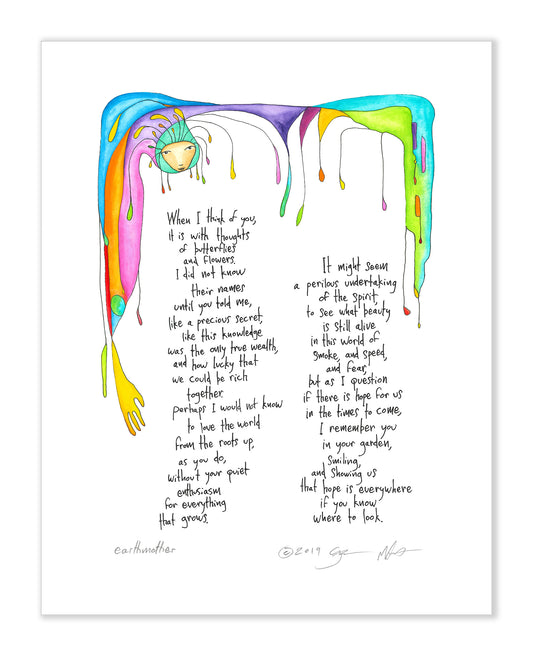 When I think of you,
it is with thoughts
of butterflies
and flowers.
I did not know
their names
until you told me,
like a precious secret,
like this knowledge
was the only true wealth,
and how lucky that
we could be rich
together.
perhaps I would not know
to love the world
from the roots up,
as you do,
without your quiet
enthusiasm
for everything
that grows.
It might seem
a perilous undertaking
of the spirit
to see what beauty
is still alive
in this world of
smoke, and speed,
and fear,
but as I question
if there is hope for us
in the times to come,
I remember you
in your garden,
smiling,
and showing us
that hope is everywhere
if you know
where to look.
earthmother
©2019